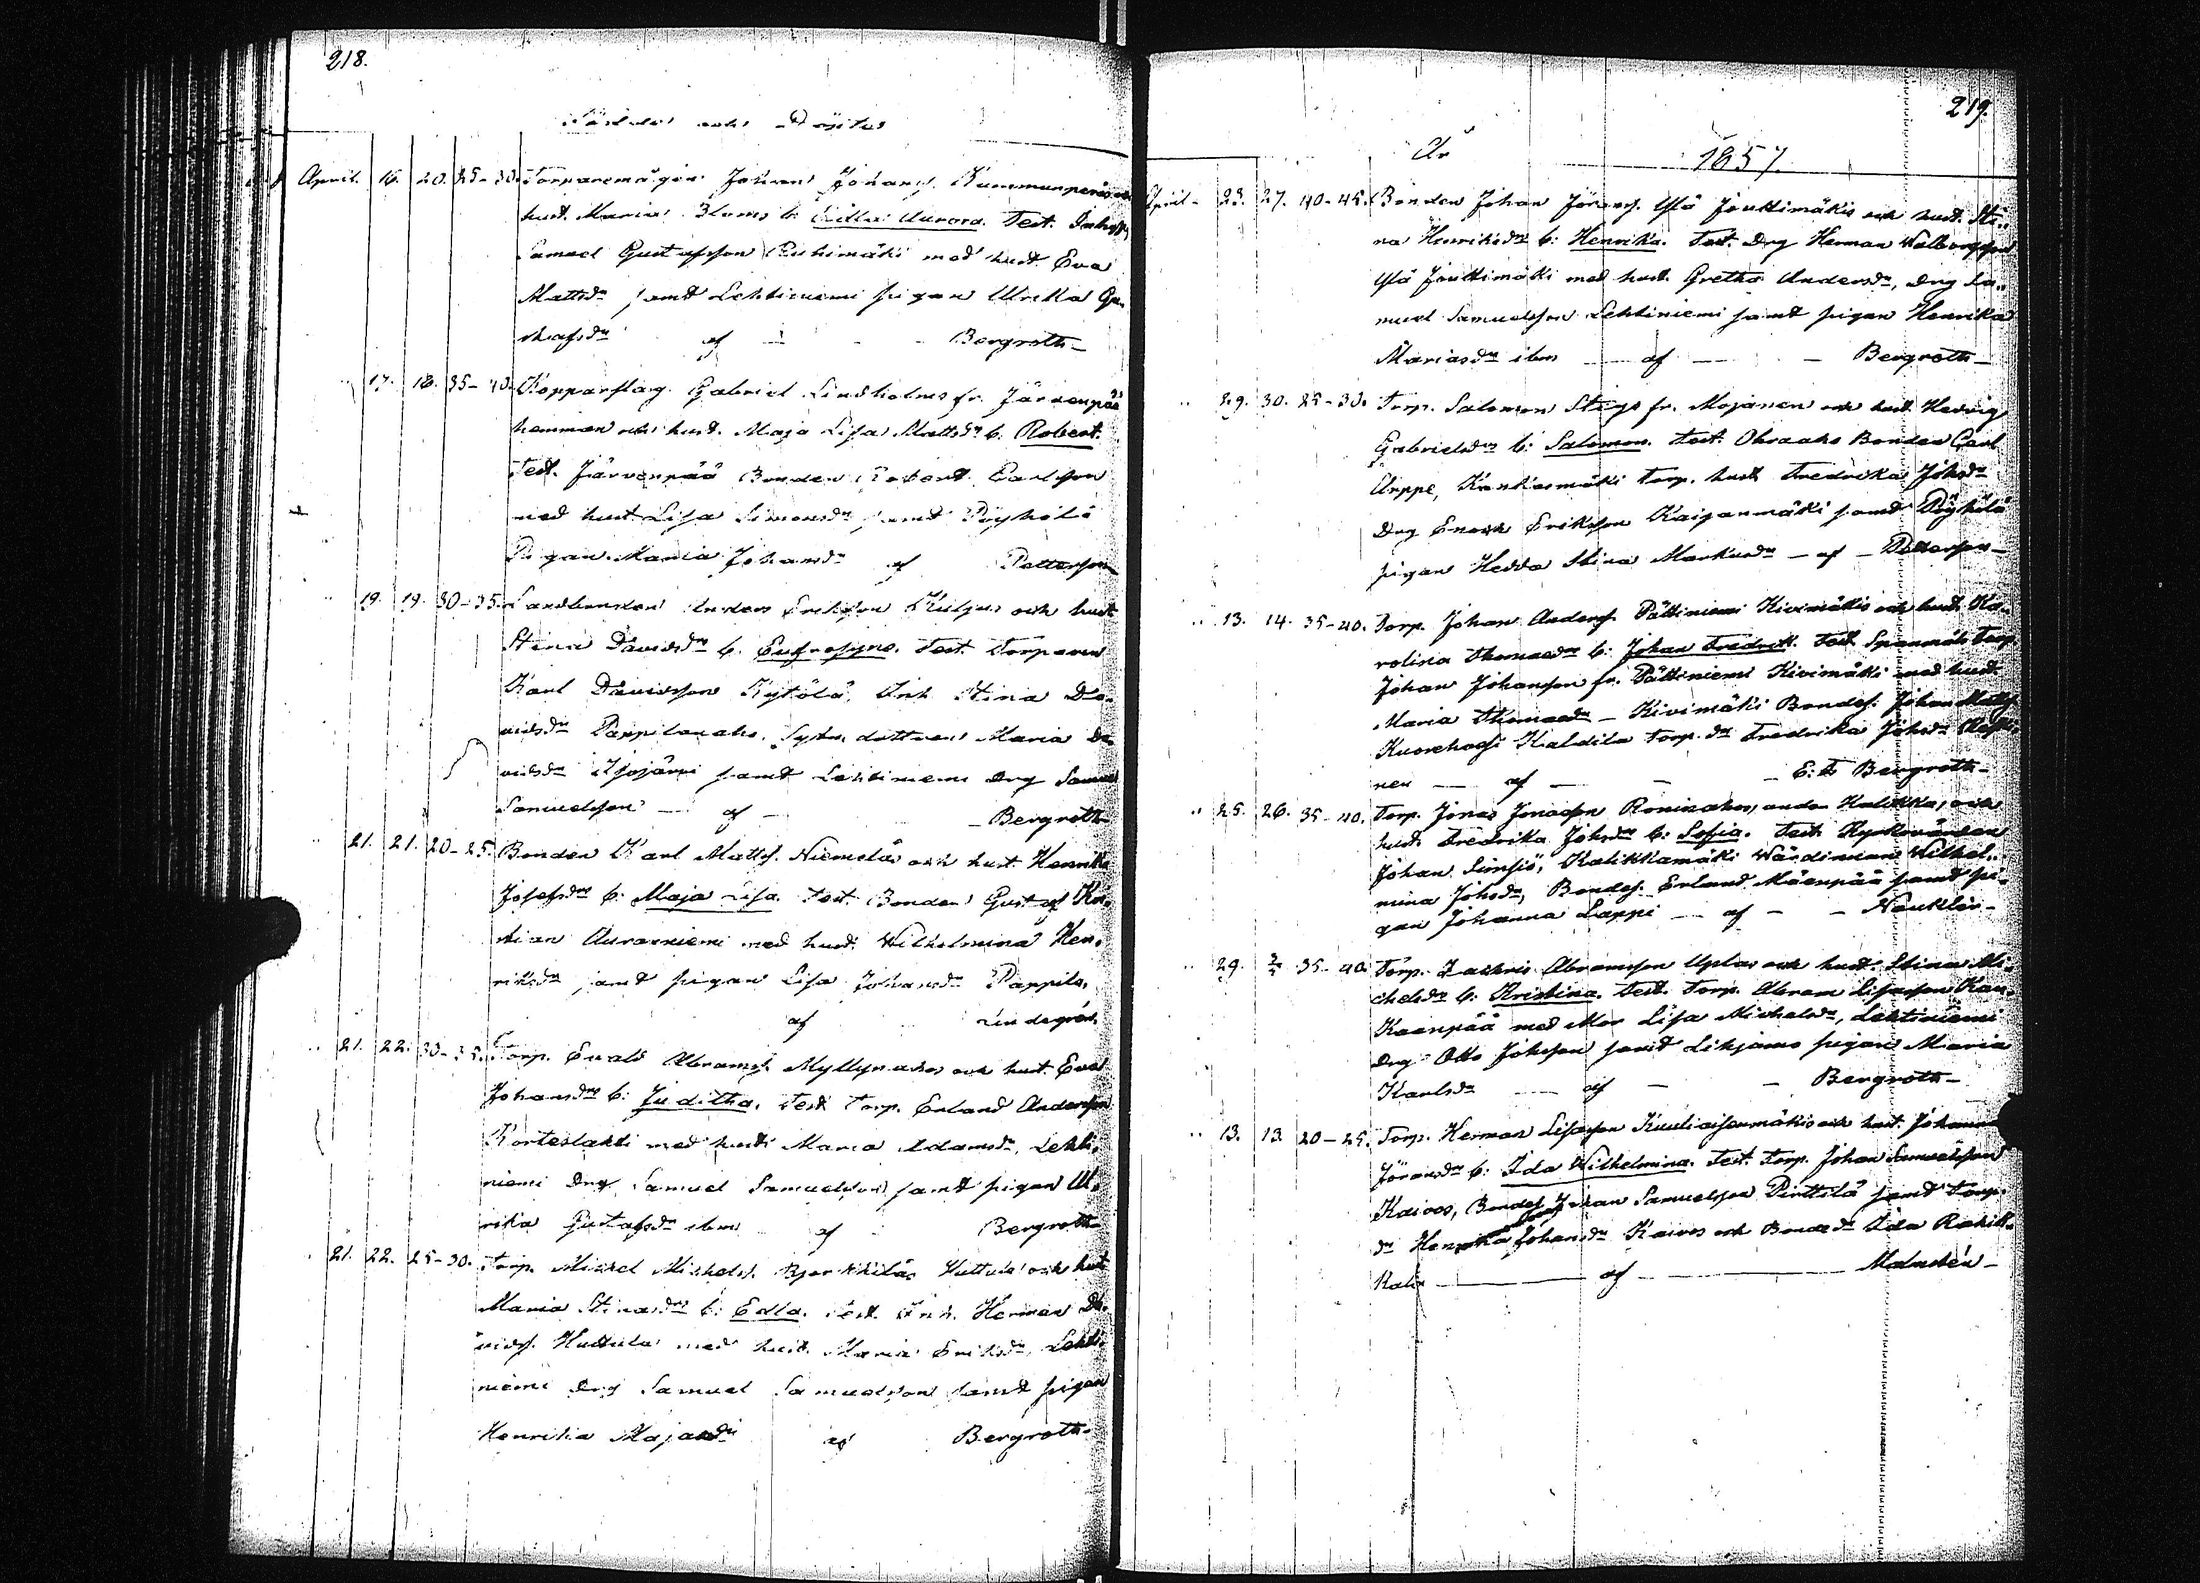 218.
Födde och Döpte
April. 16. 20. 25-30. Torparemågen Johan Johans. Kummunperäs och
hust. Maria Bloms b: Edla Aurora. Test. Inhys.
Samuel Gustafsson Ruhimäki med hust. Eva
Mattsdr samt Lehtiniemi pigan Ulrika Gu-
stafsdr af - - Bergroth-
" 17. 18. 35-40. Kopparslag. Gabriel Lindholms fr. Järvenpää
hemman och hust. Maja Lisa Mattsdr b: Robert.
Test. Järvenpää Bonden Robert Carlsson
med hust Lisa Simonsdr samt Pöyhölä
Pigan Maria Johansdr af Petterson
" 19. 19. 30-35. Landbonden Anders Eriksson Kuljus och hust
Stina Davidsdr b: Eufrosyne. Test. Torparen
Karl Davidsson Kytölä, Inh Stina Da-
vidsdr Pappilanaho, Syster dottren Maria Da-
vidsdr Isojärvi samt Lehtiniemi drg Samuel
Samuelsson - af - - Bergroth
" 21. 21. 20-25. Bonden Karl Matts. Niemeläs och hust. Henrika
Josefsdr b: Maja Lisa. Test. Bonden Gustaf Kri-
stian Auraniemi med hust. Wilhelmina Hen-
riksdr samt pigan Lisa Johansdr Pappila,
af Lindegrén.
" 21. 22. 30-35. Torp. Evald Abrams. Myllynahos och hust. Eva
Johansdr b: Juditha. Test Torp. Erland Andersson
Korteslahti med hust. Maria Adamsdr, Lehti-
niemi drg Samuel Samuelsson samt pigan Ul-
rika Gustafsdr ibm af Bergroth
" 21. 22. 25-30. Torp. Mickel Michels. Huttula och hust
Maria Stinasdr b: Edla. Test. Inh. Herman Da-
vids. Huttula med hust. Maria Eriksdr, Lehti-
niemi drg Samuel Samuelsson samt pigan
Henrika Majasdr af Bergroth-
219.
År 1857.
April - 23. 27. 40-45. Bonden Johan Jörans. Ylä Jouttimäkis och hust. Sti-
na Henriksdr b: Henrika. Test. Drg Herman Walborgsson
Ylä Jouttimäki med hust. Gretha Andersdr, drg Sa-
muel Samuelsson Lehtiniemi samt pigan Henrika
Mariasdr ibm - af - - Bergroth-
" 29. 30. 25-30. Torp. Salomon Stigs fr. Mojanen och hust. Hedvig
Gabrielsdr b: Salomon. Test. Ohraaho Bonden Carl
Arppe, Kankarimäki Torp. hust Fredrika Johsdr
Drg Enock Eriksson Kaijanmäki samt Pöyhölä
pigan Hedda Stina Markusdr - af - Petterson-
" 13. 14. 35-40. Torp. Johan Anders. Pättiniemi Kivimäkis och hust. Ka-
rolina Thomasdr b: Johan Fredrik. Test. Torp.
Johan Johansson fr. Pättiniemi Kivimäki med hust
Maria Thomasdr - Kivimäki Bondes. Johan Matts.
Torp. dr Fredrika Johsdr
nen - af - - E: F Bergroth-
" 25. 26. 35-40. Torp. Jonas Jonasson Roninahos, andra Kalikka, och
hust. Fredrika Johsdr b: Sofia. Test. Kyrkovärden
Johan Simsiö, Kalikkamäki Wärdinnan Wilhel-
mina Johsdr, Bondes. Erland Mäenpää samt pi-
gan Johanna Lappi - af - - Neuklèr-
" 29. 2/5 35-40. Torp. Zachris Abramsson Uplas och hust. Stina Mi-
chelsdr b: Kristina. Test. Torp. Abram Lisasson Kan-
Kaanpää med Mor Lisa Michelsdr, Lehtiniemi
drg Otto Johsson samt Likjamo pigan Maria
Karlsdr - af - - Bergroth-
" 13. 13. 20-25. Torp. Herman Lisasson Kuuliaisenmäkis och hust. Johanna
Jöransdr b: Ida Wilhelmina. Test. Torp. Johan Samuelsson
Kaivos, Bondes Johan Samuelsson Pirttilä samt Torp.
dr Henrika Johansdr Kaivos och Bondedr Ida Rahik-
kala - af - Malmstén-